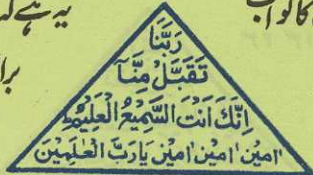 کا ثواب
یہ ہے کہ
برا
رَبَّنَا
تَقَبَّلْ مِنَّآ
اِنَّكَ اَنْتَ السَّمِيْعُ الْعَلِيْمُ
اٰمِيْن اٰمِيْن اٰمِيْن يَارَبَّ الْعٰلَمِيْن